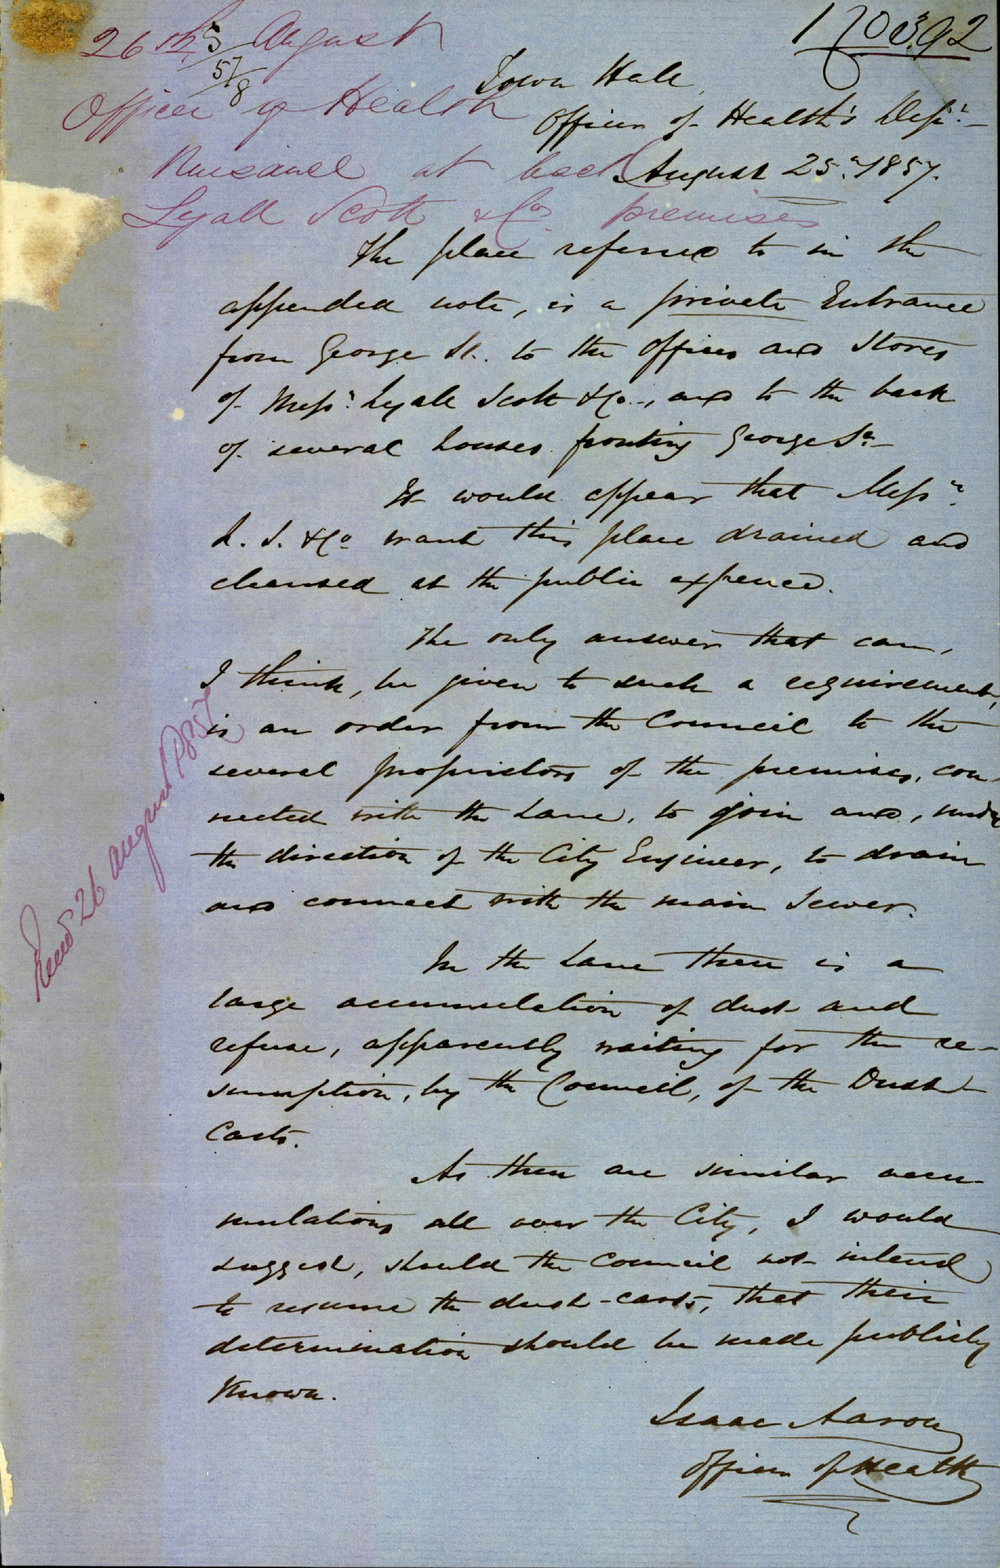 26th August
Officer of Health
Nuisance at back
Lyall Scott & Co premises
Town Hall,
Officer of Health's Dept.
August 25. 1857.
The place referred to in the
appended note, is a private Entrance
from George St. to the offices and Stores
of Messrs. Lyall Scott & Co., and to the back
of several houses fronting George St.
It would appear that Messrs.
L. S. & Co want this place drained and
cleansed at the public expence.
The only answer that can,
I think, be given to such a requirement,
is an order from the Council to the
several proprietors of the premises, con-
nected with the Lane, to join and, under
the direction of the City Engineer, to drain
and connect with the main Sewer.
In the Lane there is a
large accumulation of dust and
refuse, apparently waiting for the re-
sumption, by the Council, of the Dust
Carts.
As there are similar accu-
mulations all over the City, I would
suggest, should the Council not intend
to resume the dust-carts, that their
determination should be made publicly
known.
Isaac Aaron
Officer of Health
Recd 26 August 1857